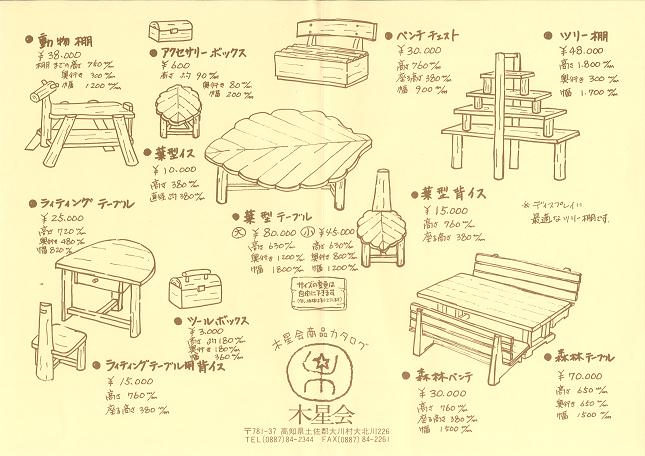 動物棚
¥38.000
棚までの高さ 760㎜
奥行き 300㎜
幅 1200㎜
アクセサリーボックス
¥600
高さ 約90㎜
奥行き 80㎜
幅 200㎜
ベンチチェスト
¥30.000
高さ 760㎜
座る高さ 380㎜
幅 900㎜
ツリー棚
¥48.000
高さ 1.800㎜
奥行き 300㎜
幅 1.700㎜
※ディスプレイに
最適なツリー棚です。
葉型イス
¥10.000
高さ 380㎜
直径約380㎜
ライティングテーブル
¥25.000
高さ 720㎜
奥行き 480㎜
幅 820㎜
葉型テーブル
大 ¥80.000 小 ¥45.000
高さ 630㎜ 高さ 630㎜
奥行き 1200㎜ 奥行き 800㎜
幅 1800㎜ 幅 1200㎜
サイズの変更は
自由にできます
葉型背イス
¥15.000
高さ 760㎜
座る高さ 380㎜
ツールボックス
¥3.000
高さ 約180㎜
奥行き 180㎜
幅 360㎜
ライティングテーブル用背イス
¥15.000
高さ 760㎜
座る高さ 380㎜
木星会商品カタログ
木星会
〒781-37 高知県土佐郡大川村大北川226
TEL(0887)84-2344 FAX(0887)84-2261
森林ベンチ
¥30.000
高さ 760㎜
座る高さ 380㎜
幅 1500㎜
森林テーブル
¥70.000
高さ 650㎜
奥行き 650㎜
幅 1500㎜